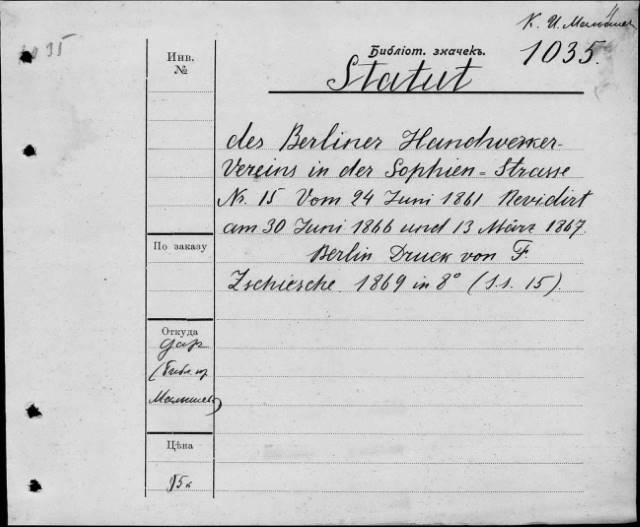 К. И. Малышев
1035
Библіот. значекъ.
1035.
Инв.
№
Statut
des Berliner Handwerker-
Vereins in der Sophien-Strasse
Nr. 15 Vom 24 Juni 1861 Revidirt
am 30 Juni 1866 und 13 März 1867.
По заказу
Berlin Druck von F.
Zschiesche 1869 in 8° (S.s. 15).
Откуда
дар
Малышева)
Цѣна
15к